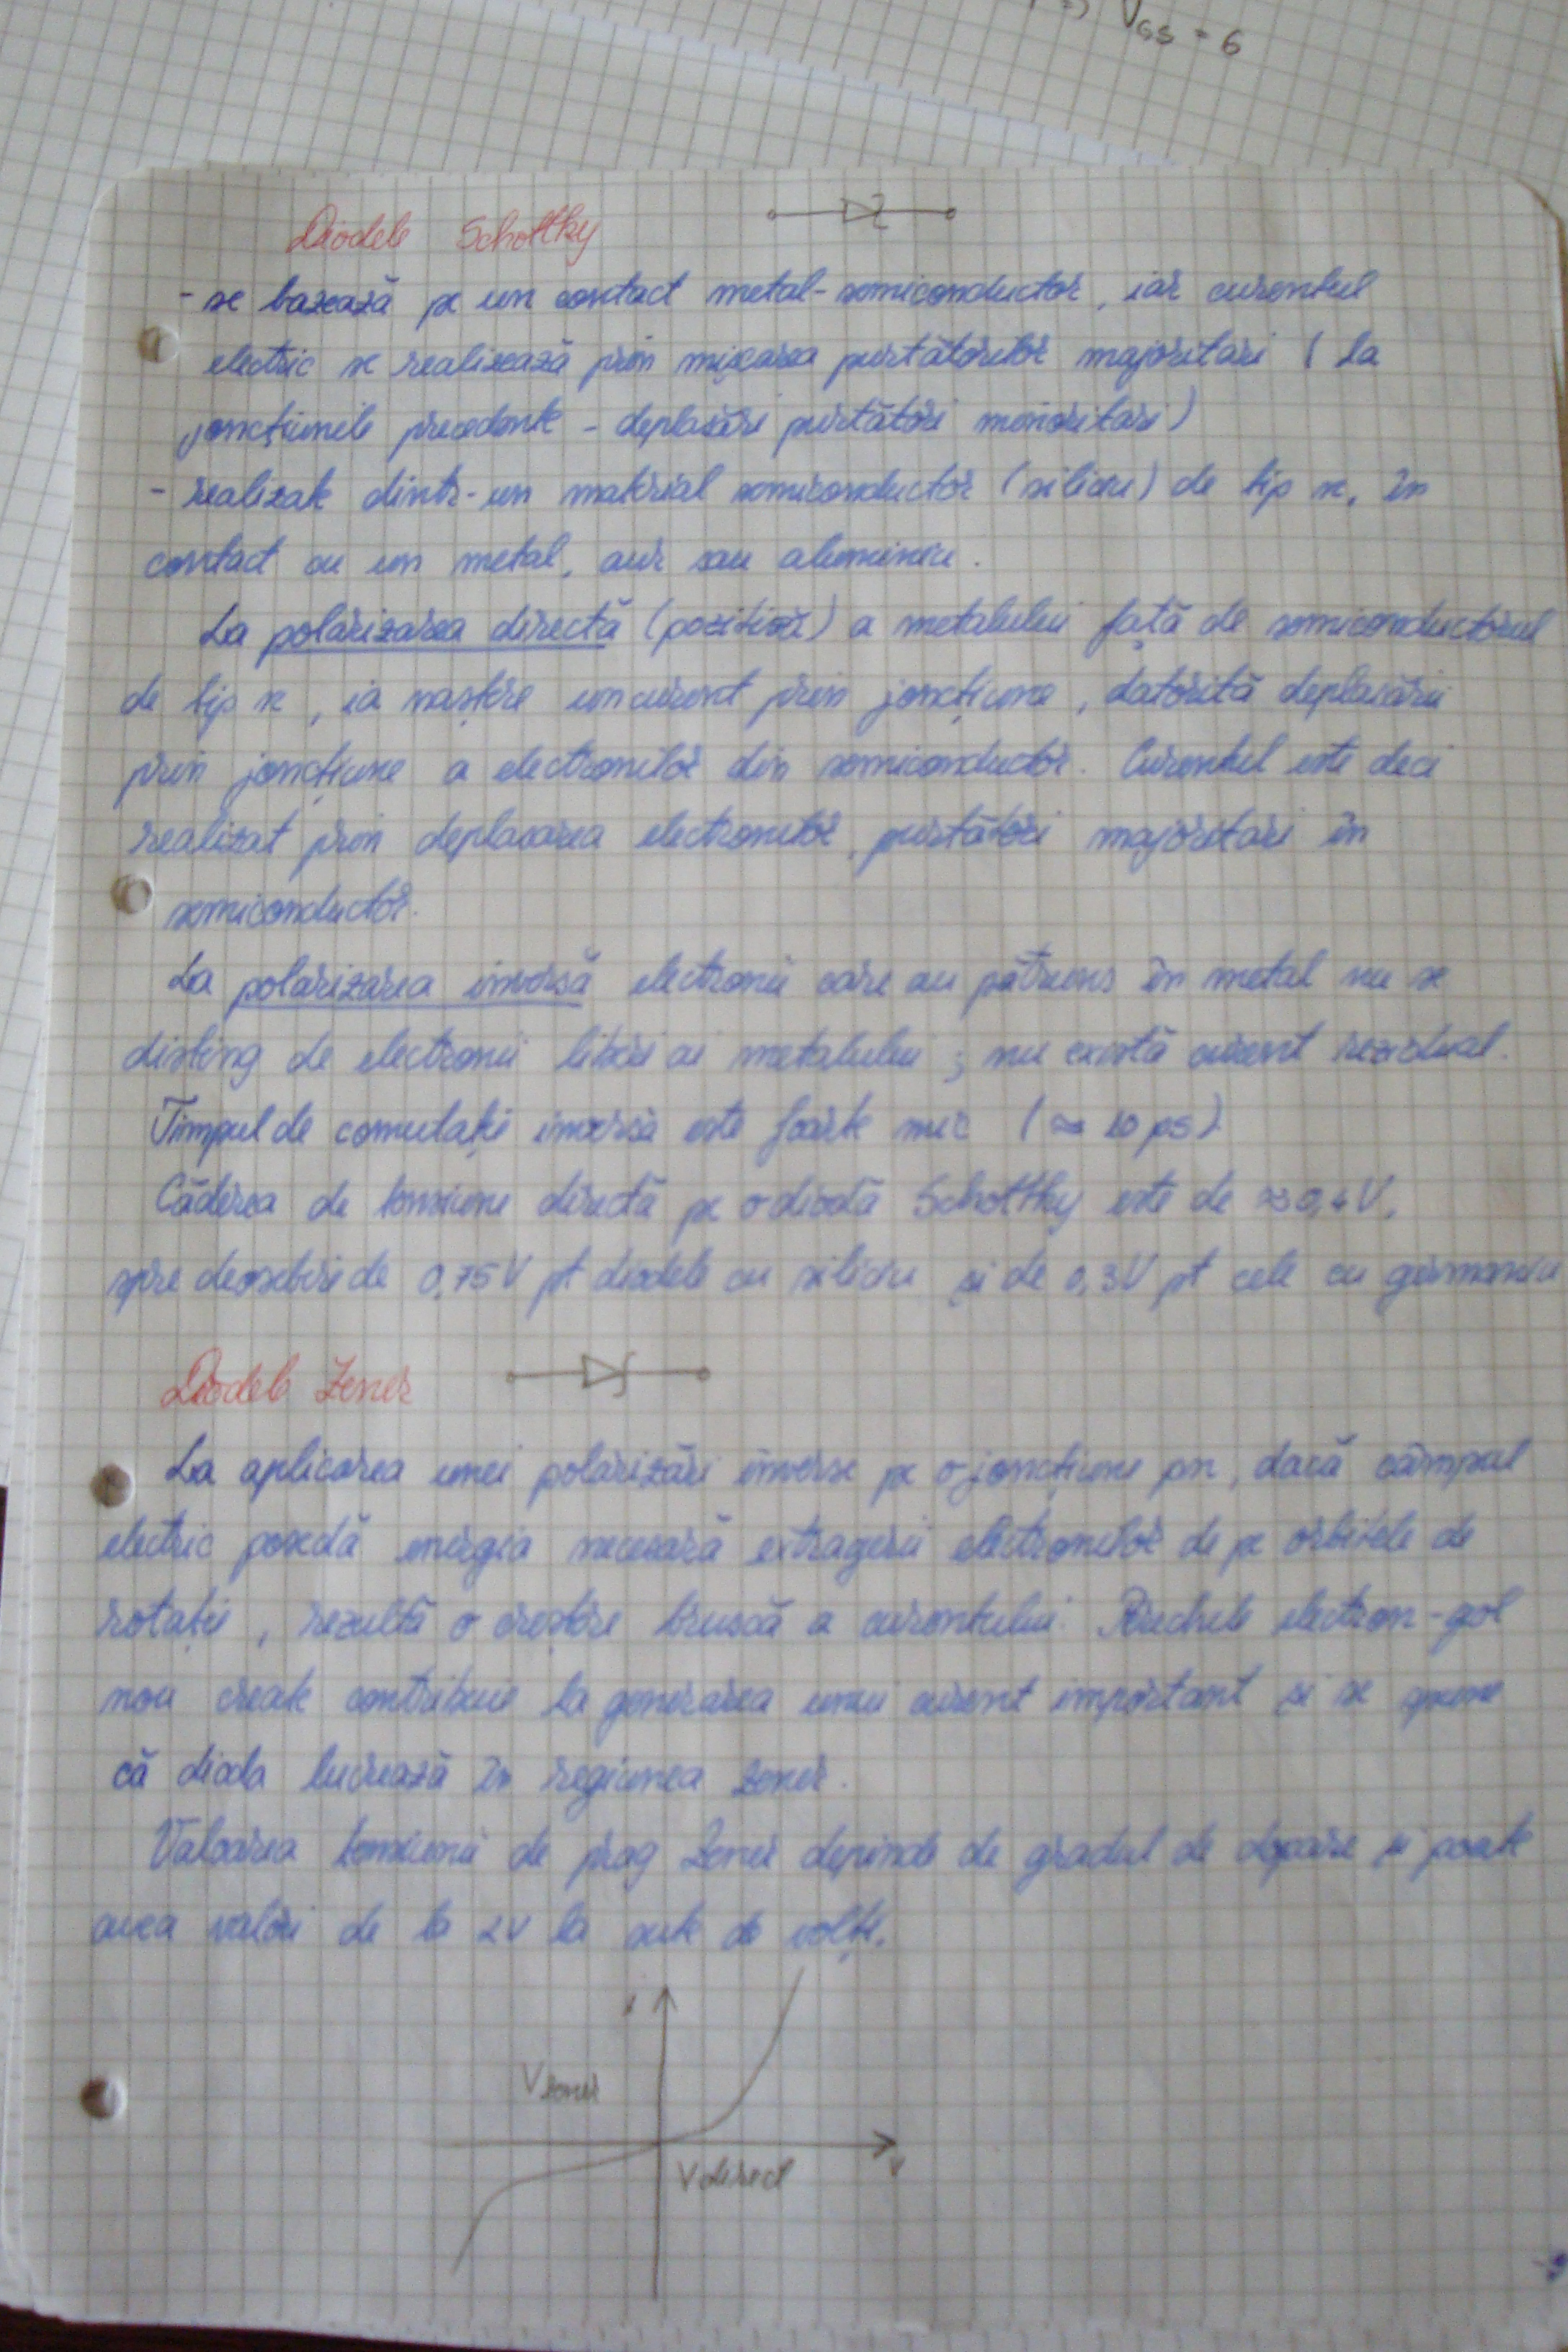 => VGS = 6
Diodele Schottky
- se bazează pe un contact metal-semiconductor, iar curentul
electric se realizează prin mișcarea purtătorilor majoritari (la
joncțiunile precedente - deplasări purtători minoritari)
- realizate dintr-un material semiconductor (siliciu) de tip n, în
contact cu un metal, aur sau aluminiu.
La polarizarea directă (pozitivă) a metalului față de semiconductorul
de tip n, ia naștere un curent prin joncțiune, datorită deplasării
prin joncțiune a electronilor din semiconductor. Curentul este deci
realizat prin deplasarea electronilor, purtători majoritari în
semiconductor.
La polarizarea inversă electronii care au pătruns în metal nu se
disting de electronii liberi ai metalului; nu există curent rezidual.
Timpul de comutație inversă este foarte mic (≈ 10 ps)
Căderea de tensiune directă pe o diodă Schottky este de ≈ 0,4 V,
spre deosebire de 0,75V pt diodele cu siliciu și de 0,3V pt cele cu germaniu
Diodele Zener
La aplicarea unei polarizări inverse pe o joncțiune pn, dacă câmpul
electric posedă energia necesară extragerii electronilor de pe orbitele de
rotație, rezultă o creștere bruscă a curentului. Perechile electron-gol
nou create contribuie la generarea unui curent important și se spune
că dioda lucrează în regiunea Zener.
Valoarea tensiunii de prag Zener depinde de gradul de dopare și poate
avea valori de la 2V la sute de volți.
i
Vzener
Vdirect
v